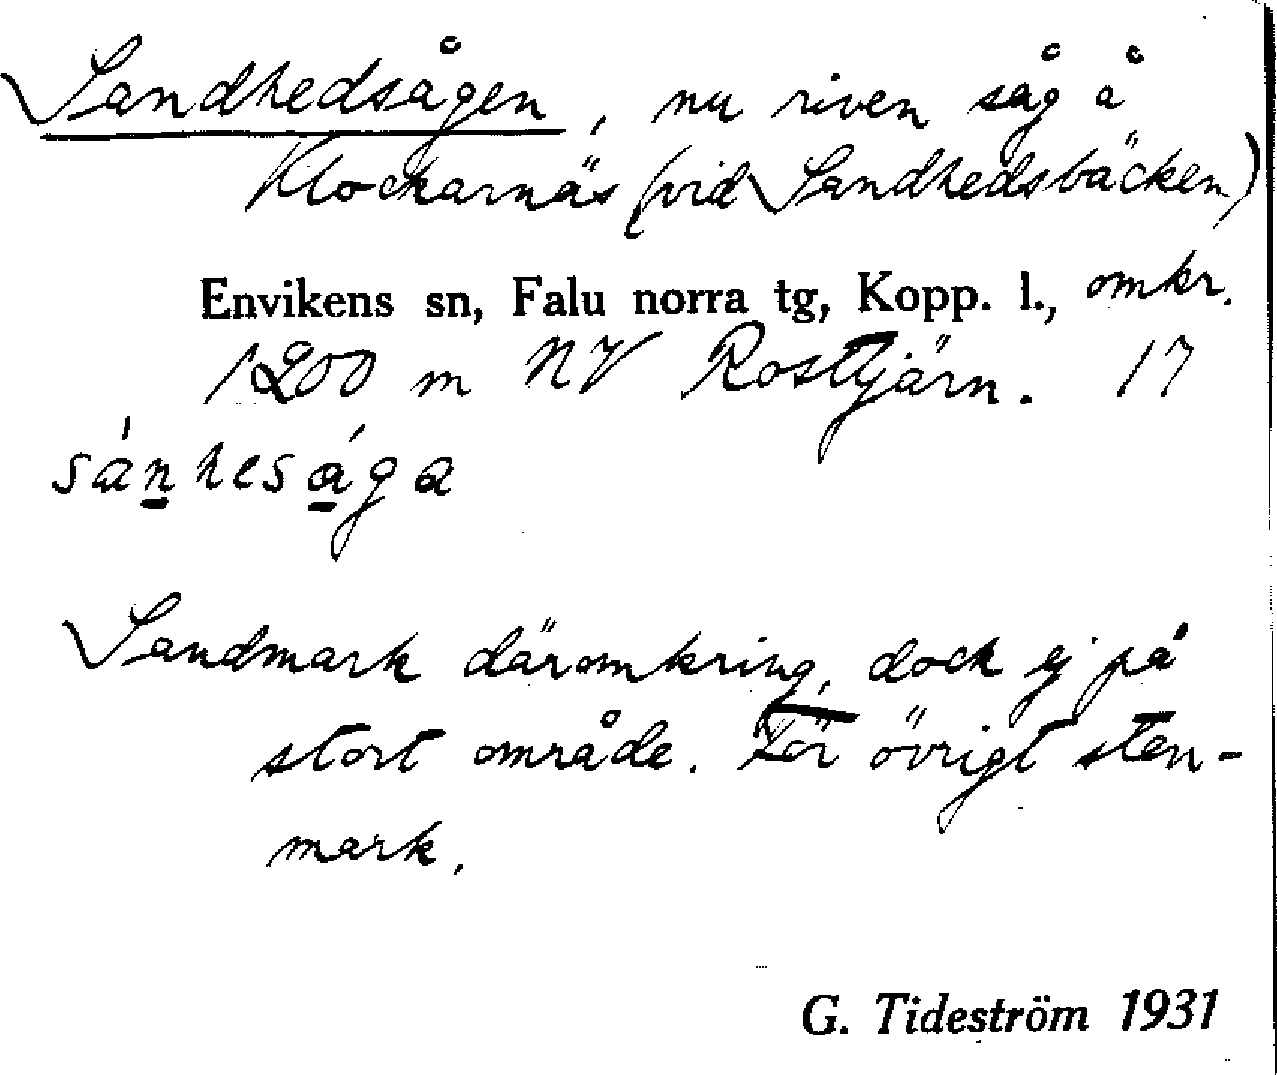 Sandhedsågen, nu riven såg å
Klockarnäs (vid Sandhedsbäcken)
Envikens sn, Falu norra tg, Kopp. l., omkr.
1200 m NV Rostjärn. 17
sánhesága
Sandmark däromkring, dock ej på
stort område. För övrigt sten-
mark.
G. Tideström 1931